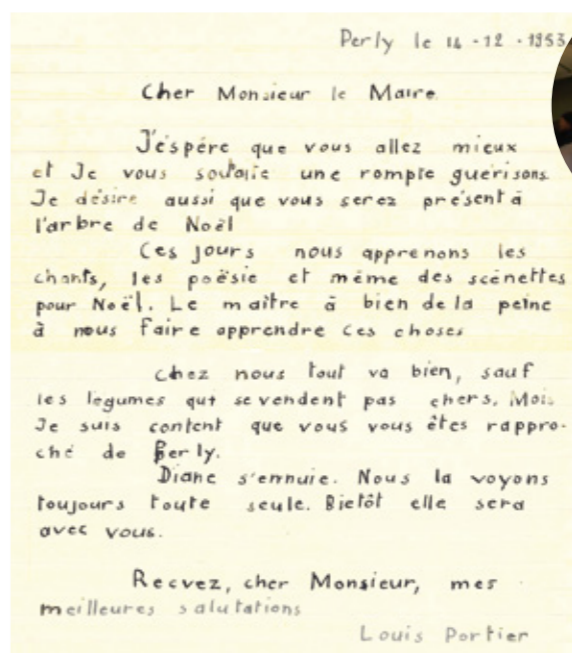 Perly le 14 - 12 - 1953
Cher Monsieur le Maire
J'éspére que vous allez mieux
et Je vous souhaite une rompte guérisons.
Je désire aussi que vous serez présent à
l'arbre de Noël
Ces Jours nous apprenons les
chants, les poësie et même des scénettes
pour Noël. Le maître à bien de la peine
à nous faire apprendre ces choses
Chez nous tout va bien, sauf
les légumes qui se vendent pas chers. Mais
Je suis content que vous vous êtes rappro-
ché de Perly.
Diane s'ennuie. Nous la voyons
toujours toute seule. Bietôt elle sera
avec vous.
Recvez, cher Monsieur, mes
meilleures salutations
Louis Portier